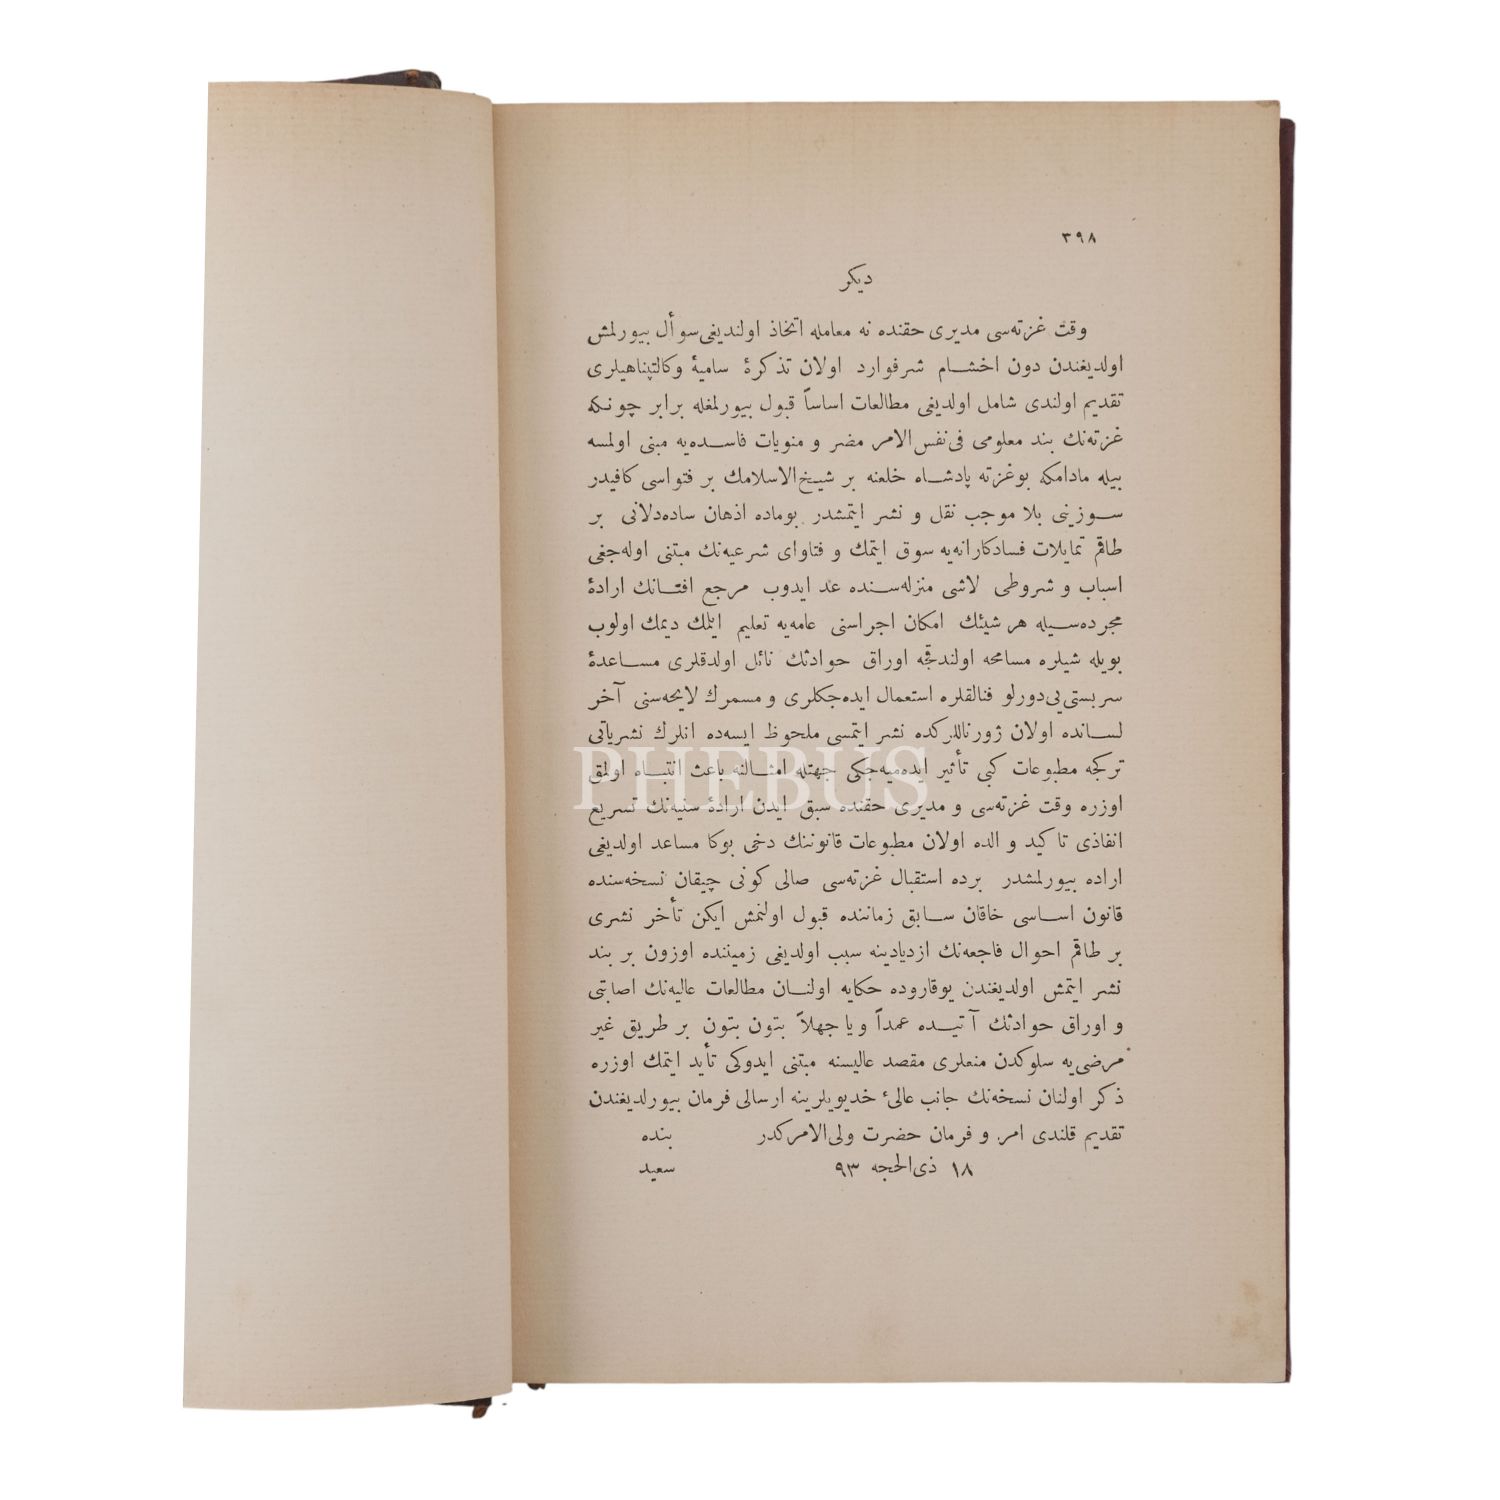 ٣٩٨
ديكر
وقت غزته‌سى مديرى حقنده نه معامله اتخاذ اولنديغى سوأل بيورلمش
اولديغندن دون اخشام شرفوارد اولان تذكرهٔ ساميهٔ وكالتپناهيلرى
تقديم اولندى شامل اولديغى مطالعات اساساً قبول بيورلمغله برابر چونكه
غزته‌نك بند معلومى فى‌نفس‌الامر مضر و منويات فاسده‌يه مبنى اولمسه
بيله مادامكه بوغزته پادشاه خلعنه بر شيخ‌الاسلامك بر فتواسى كافيدر
سوزينى بلا موجب نقل و نشر ايتمشدر بوماده اذهان ساده‌دلانى بر
طاقم تمايلات فسادكارانه‌يه سوق ايتمك و فتاواى شرعيه‌نك مبتنى اوله‌جغى
اسباب و شروطى لاشى منزله‌سنده عد ايدوب مرجع افتانك ارادهٔ
مجرده‌سيله هر شيئك امكان اجراسنى عامه‌يه تعليم ايلمك ديمك اولوب
بويله شيلره مسامحه اولندقجه اوراق حوادثك نائل اولدقلرى مساعدهٔ
سربستى‌يى دورلو فنالقلره استعمال ايده‌جكلرى و مسمرك لايحه‌سنى آخر
لسانده اولان ژورناللركده نشر ايتمسى ملحوظ ايسه‌ده انلرك نشرياتى
تركجه مطبوعات كبى تأثير ايده‌ميه‌جكى جهتله امثالنه باعث انتباه اولمق
اوزره وقت غزته‌سى و مديرى حقنده سبق ايدن ارادهٔ سنيه‌نك تسريع
انفاذى تاكيد و الده اولان مطبوعات قانوننك دخى بوكا مساعد اولديغى
اراده بيورلمشدر برده استقبال غزته‌سى صالى كونى چيقان نسخه‌سنده
قانون اساسى خاقان سابق زماننده قبول اولنمش ايكن تأخر نشرى
بر طاقم احوال فاجعه‌نك ازديادينه سبب اولديغى زميننده اوزون بر بند
نشر ايتمش اولديغندن يوقاروده حكايه اولنان مطالعات عاليه‌نك اصابتى
و اوراق حوادثك آتيده عمداً ويا جهلاً بتون بتون بر طريق غير
مرضى‌يه سلوكدن منعلرى مقصد عاليسنه مبتنى ايدوكى تأيد ايتمك اوزره
ذكر اولنان نسخه‌نك جانب عالئ خديويلرينه ارسالى فرمان بيورلديغندن
تقديم قلندى امر و فرمان حضرت ولى‌الامركدر بنده
١٨ ذى‌الحجه ٩٣ سعيد
PHEBUS